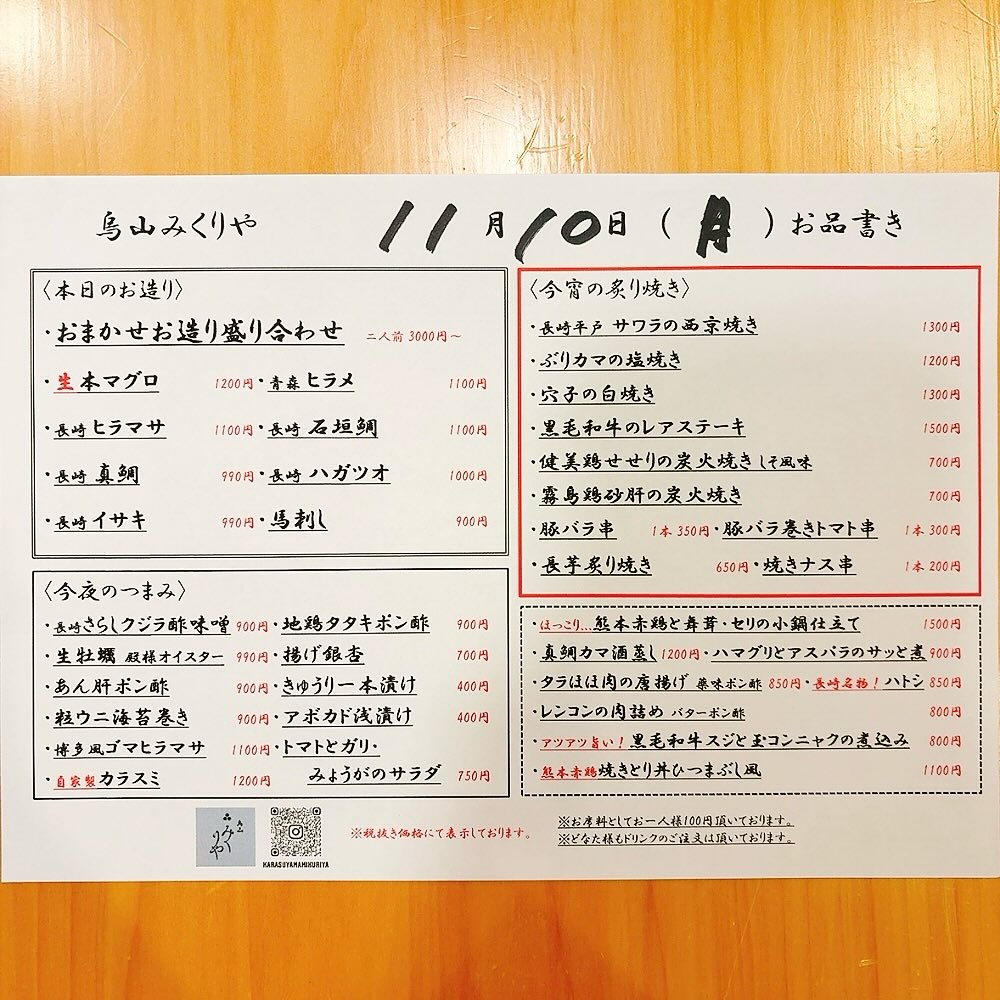 烏山みくりや 11月10日(月)お品書き
〈本日のお造り〉
・おまかせお造り盛り合わせ 二人前 3000円～
・生本マグロ 1200円・青森 ヒラメ 1100円
・長崎 ヒラマサ 1100円・長崎 石垣鯛 1100円
・長崎 真鯛 990円・長崎 ハガツオ 1000円
・長崎 イサキ 990円・馬刺し 900円
〈今夜のつまみ〉
・長崎さらしクジラ酢味噌 900円・地鶏タタキポン酢 900円
・生牡蠣 殿様オイスター 990円・揚げ銀杏 700円
・あん肝ポン酢 900円・きゅうり一本漬け 400円
・粒ウニ海苔巻き 900円・アボカド浅漬け 400円
・博多風ゴマヒラマサ 1100円・トマトとガリ・
・自家製カラスミ 1200円 みょうがのサラダ 750円
〈今宵の炙り焼き〉
・長崎平戸 サワラの西京焼き 1300円
・ぶりカマの塩焼き 1200円
・穴子の白焼き 1300円
・黒毛和牛のレアステーキ 1500円
・健美鶏せせりの炭火焼き しそ風味 700円
・霧島鶏砂肝の炭火焼き 700円
・豚バラ串 1本 350円・豚バラ巻きトマト串 1本 300円
・長芋炙り焼き 650円・焼きナス串 1本 200円
・ほっこり…熊本赤鶏と舞茸・セリの小鍋仕立て 1500円
・真鯛カマ酒蒸し 1200円・ハマグリとアスパラのサッと煮 900円
・タラほほ肉の唐揚げ 薬味ポン酢 850円・長崎名物！ハトシ 850円
・レンコンの肉詰め バターポン酢 800円
・アツアツ旨い！黒毛和牛スジと玉コンニャクの煮込み 800円
・熊本赤鶏焼きとり丼ひつまぶし風 1100円
みくりや
KARASUYAMAMIKURIYA
※税抜き価格にて表示しております。
※お席料としてお一人様100円頂いております。
※どなた様もドリンクのご注文は頂いております。